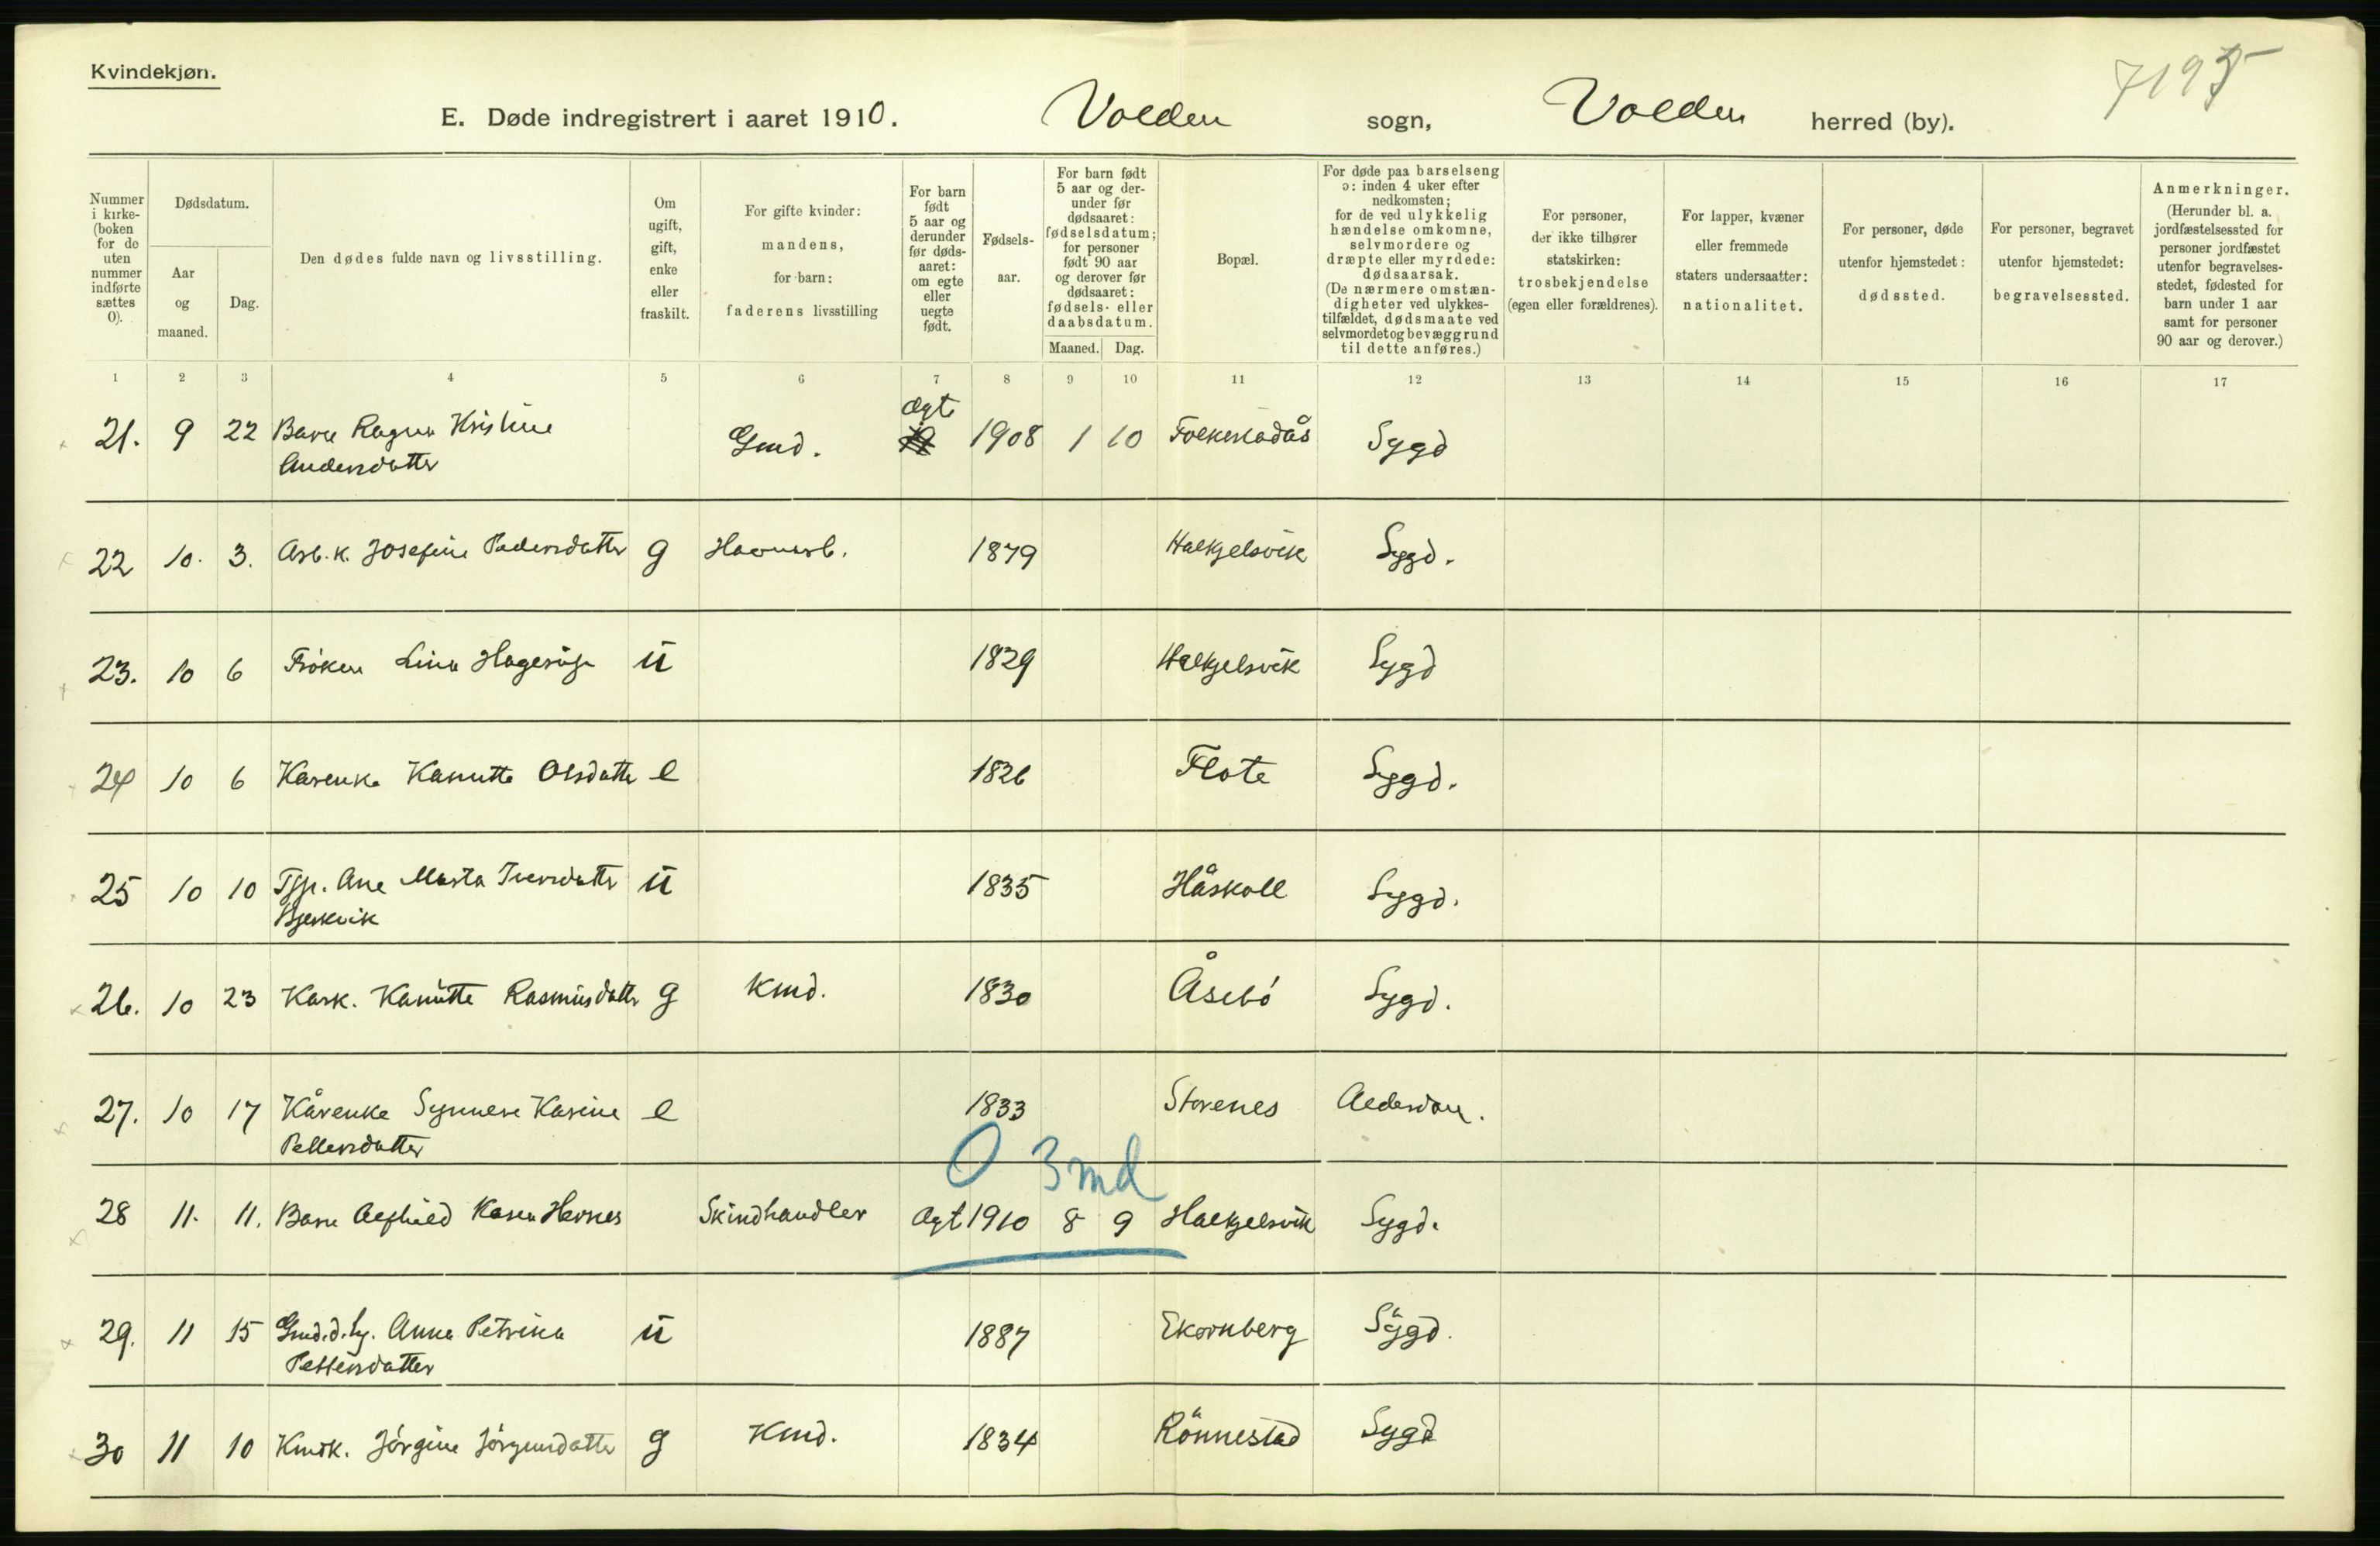 Kvindekjøn.
7195
E. Døde indregistrert i aaret 1910. Volden sogn, Volden herred (by).
Nummer i kirke- (boken for de uten nummer indførte sættes 0).
Dødsdatum.
Aar og maaned.
Dag.
Den dødes fulde navn og livsstilling.
Om ugift, gift, enke eller fraskilt.
For gifte kvinder: mandens, for barn: faderens livsstilling
For barn født 5 aar og derunder før døds- aaret: om egte eller uegte født.
Fødsels- aar.
For barn født 5 aar og der- under før dødsaaret: fødselsdatum; for personer født 90 aar og derover før dødsaaret: fødsels- eller daabsdatum.
Maaned. Dag.
Bopæl.
For døde paa barselseng ɔ: inden 4 uker efter nedkomsten; for de ved ulykkelig hændelse omkomne, selvmordere og dræpte eller myrdede: dødsaarsak. (De nærmere omstæn- digheter ved ulykkes- tilfældet, dødsmaate ved selvmord et og bevæggrund til dette anføres.)
For personer, der ikke tilhører statskirken: trosbekjendelse (egen eller forældrenes).
For lapper, kvæner eller fremmede staters undersaatter: nationalitet.
For personer, døde utenfor hjemstedet: dødssted.
For personer, begravet utenfor hjemstedet: begravelsessted.
Anmerkninger. (Herunder bl. a. jordfæstelsessted for personer jordfæstet utenfor begravelses- stedet, fødested for barn under 1 aar samt for personer 90 aar og derover.)
1 2 3 4 5 6 7 8 9 10 11 12 13 14 15 16 17
21. 9 22 Barn Ragna Kristine Gmd. ægte 1908 1 10 Folkestadås Sygd
Andersdatter
22 10. 3. Arb. k. Josefine Pedersdatter g Havnearb. 1879 Halkjelsvik Sygd.
23. 10 6 Frøken Lina Hagerup u 1829 Halkjelsvik Sygd
24 10 6 Kårenke Kanutte Olsdatter e 1826 Flote Sygd.
25 10 10 Tjp. Ane Marta Iversdatter u 1835 Håskoll Sygd.
Bjerkvik
26. 10 23 Kark. Kanutte Rasmusdatter g Kmd. 1830 Åsebø Sygd.
27. 10 17 Kårenke Synnere Karine e 1833 Storenes Alderdom.
Pettersdatter
0 3 md
28 11. 11. Barn Alfhild Karen Havnes Skindhandler Ægt 1910 8 9 Halkjelsvik Sygd.
29. 11 15 Gmd.d.ly. Anna Petrina u 1887 Ekornberg Sygd.
Pettersdatter
30 11 10 Kmdk. Jørgine Jørgensdatter g Kmd. 1834 Rønnestad Sygd